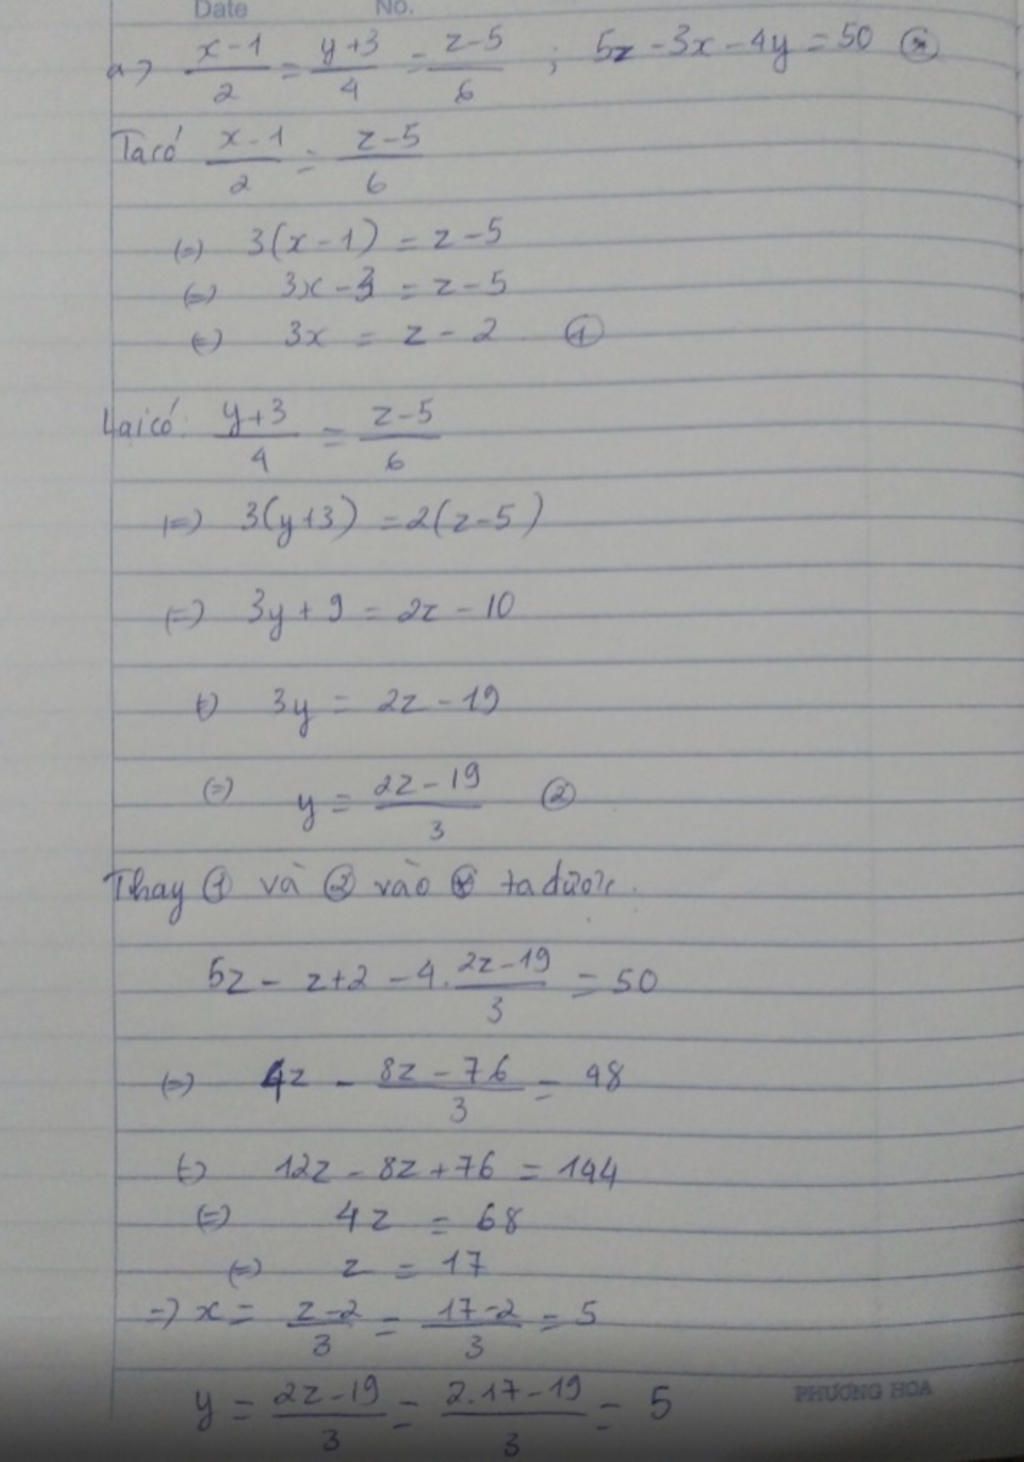 Date No.
a) x-1/2 = y+3/4 = z-5/6 ; 5z - 3x - 4y = 50 (*)
Ta có x-1/2 = z-5/6
(=) 3(x-1) = z-5
(=) 3x-3 = z-5
(=) 3x = z-2 (1)
Lại có: y+3/4 = z-5/6
(=) 3(y+3) = 2(z-5)
(=) 3y+9 = 2z-10
(=) 3y = 2z-19
(=) y = 2z-19/3 (2)
Thay (1) và (2) vào (*) ta được.
5z - z+2 - 4.2z-19/3 = 50
(=) 4z - 8z-76/3 = 48
(=) 12z-8z+76 = 144
(=) 4z = 68
(=) z = 17
=) x = z-2/3 = 17-2/3 = 5
y = 2z-19/3 = 2.17-19/3 = 5
PHƯƠNG HOA